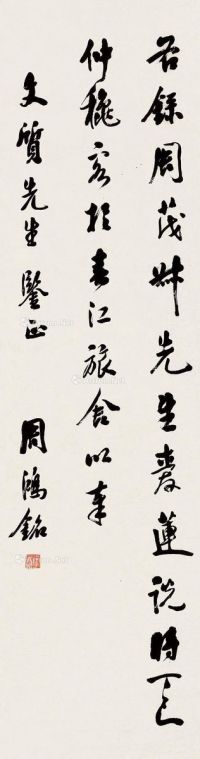 右録周茂叔先生愛蓮説時丁巳
仲穐客於春江旅舍以奉
文質先生鑒正 周鴻銘